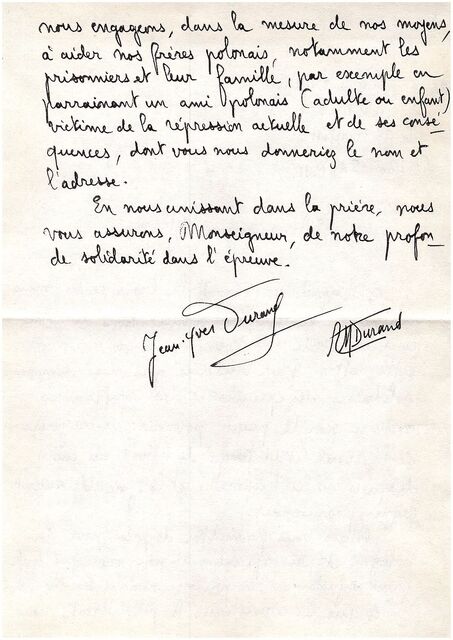 nous engageons, dans la mesure de nos moyens,
à aider nos frères polonais, notamment les
prisonniers et leur famille, par exemple en
parrainant un ami polonais (adulte ou enfant)
victime de la répression actuelle et de ses consé
quences, dont vous nous donneriez le nom et
l'adresse.
En nous unissant dans la prière, nous
vous assurons, Monseigneur, de notre profon
de solidarité dans l'épreuve.
Jean-Yves Durand
AM Durand